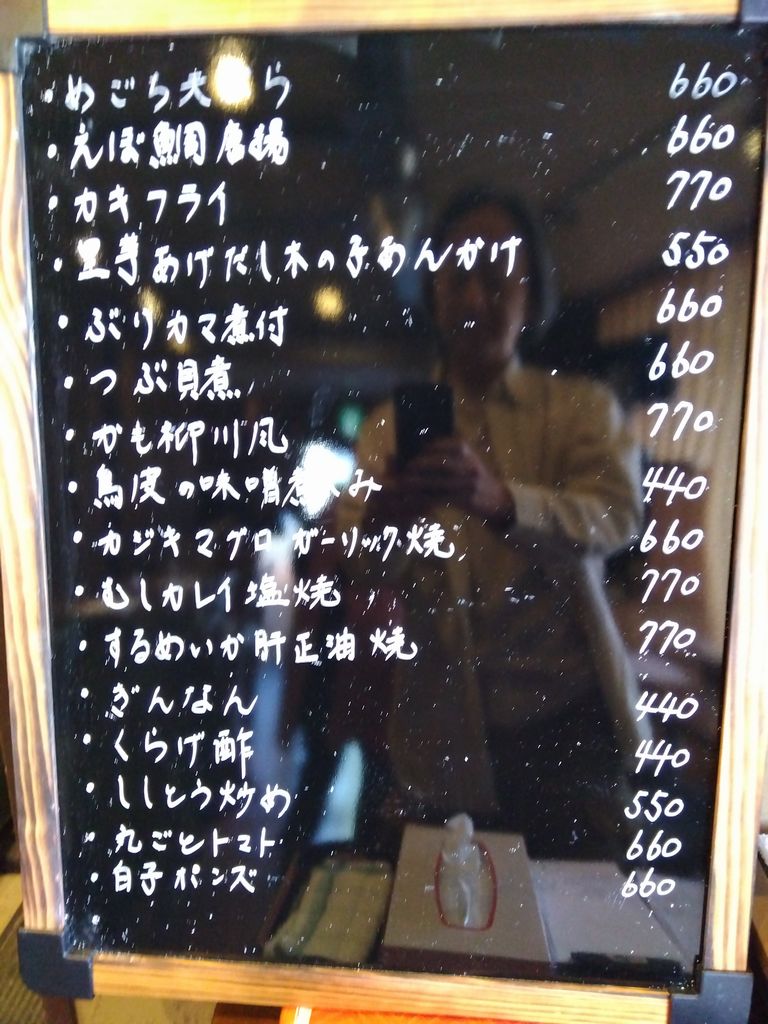 ・めごち天ぷら 660
・えぼ鯛唐揚 660
・カキフライ 770
・里芋あげだし木の子あんかけ 550
・ぶりカマ煮付 660
・つぶ貝煮 660
・かも柳川風 770
・鳥皮の味噌煮込み 440
・カジキマグロガーリック焼 660
・むしカレイ塩焼 770
・するめいか肝正油焼 770
・ぎんなん 440
・くらげ酢 440
・ししとう炒め 550
・丸ごとトマト 660
・白子ポンズ 660